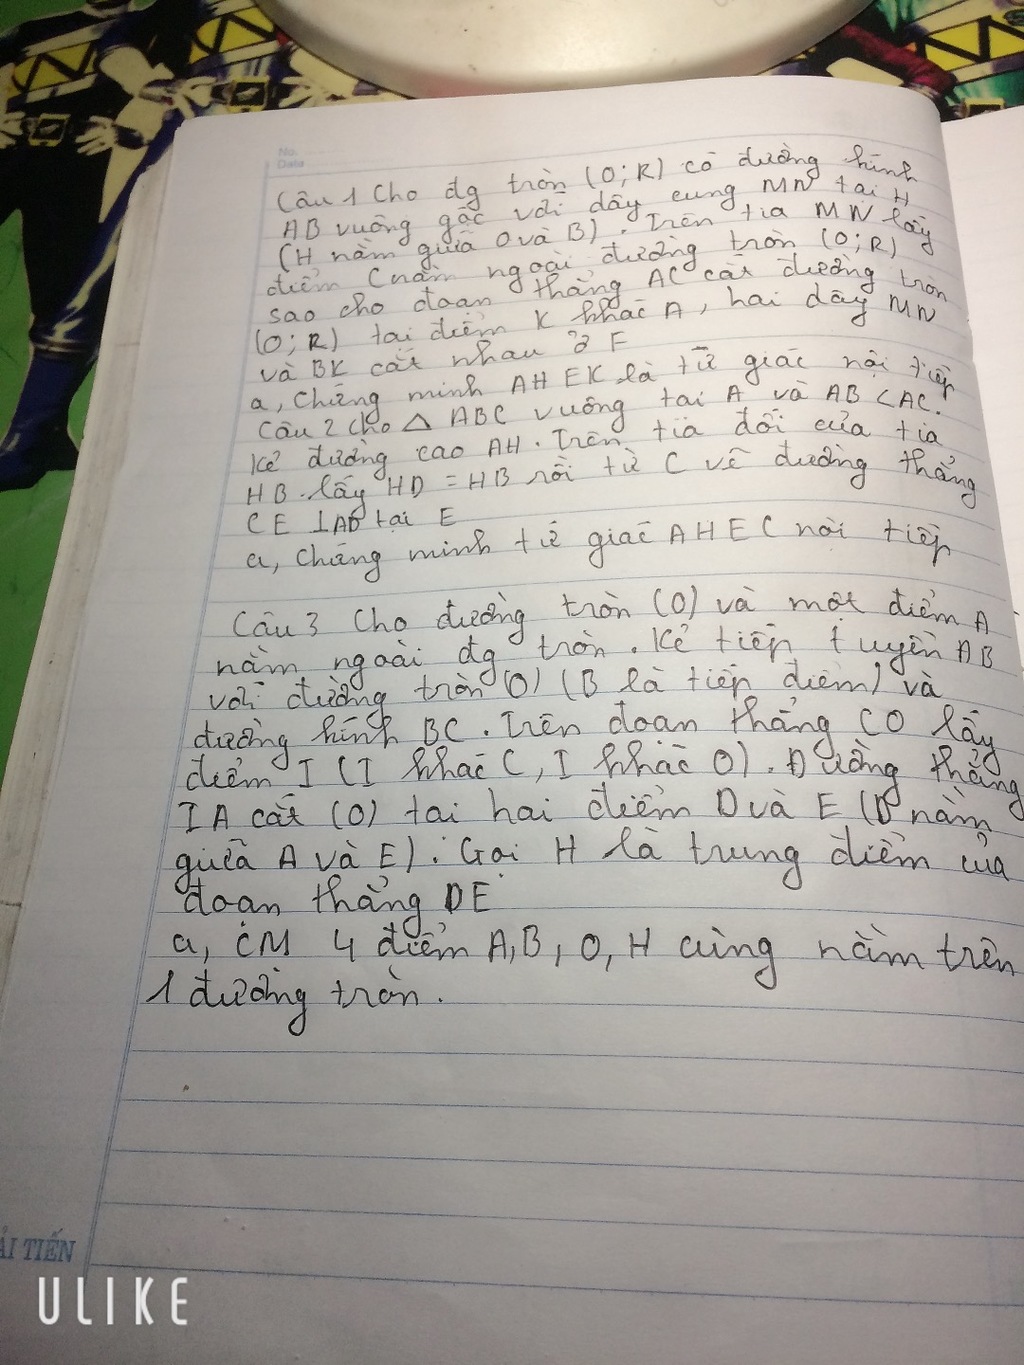 No.
Date
Câu 1 Cho đg tròn (O;R) có đường kính
AB vuông góc với dây cung MN tại H
(H nằm giữa O và B). Trên tia MN lấy
điểm C nằm ngoài đường tròn (O;R)
sao cho đoạn thẳng AC cắt đường tròn
(O;R) tại điểm K khác A, hai dây MN
và BK cắt nhau ở F
a, Chứng minh AHEK là tứ giác nội tiếp
Câu 2 cho △ ABC vuông tại A và AB < AC.
Kẻ đường cao AH. Trên tia đối của tia
HB lấy HD = HB rồi từ C vẽ đường thẳng
CE ⊥ AD tại E
a, Chứng minh tứ giác AHEC nội tiếp
Câu 3 Cho đường tròn (O) và một điểm A
nằm ngoài đg tròn. Kẻ tiếp tuyến AB
với đường tròn (O) (B là tiếp điểm) và
đường kính BC. Trên đoạn thẳng CO lấy
điểm I (I khác C, I khác O). Đường thẳng
IA cắt (O) tại hai điểm D và E (D nằm
giữa A và E). Gọi H là trung điểm của
đoạn thẳng DE
a, CM 4 điểm A, B, O, H cùng nằm trên
1 đường tròn.
ẢI TIẾN
ULIKE